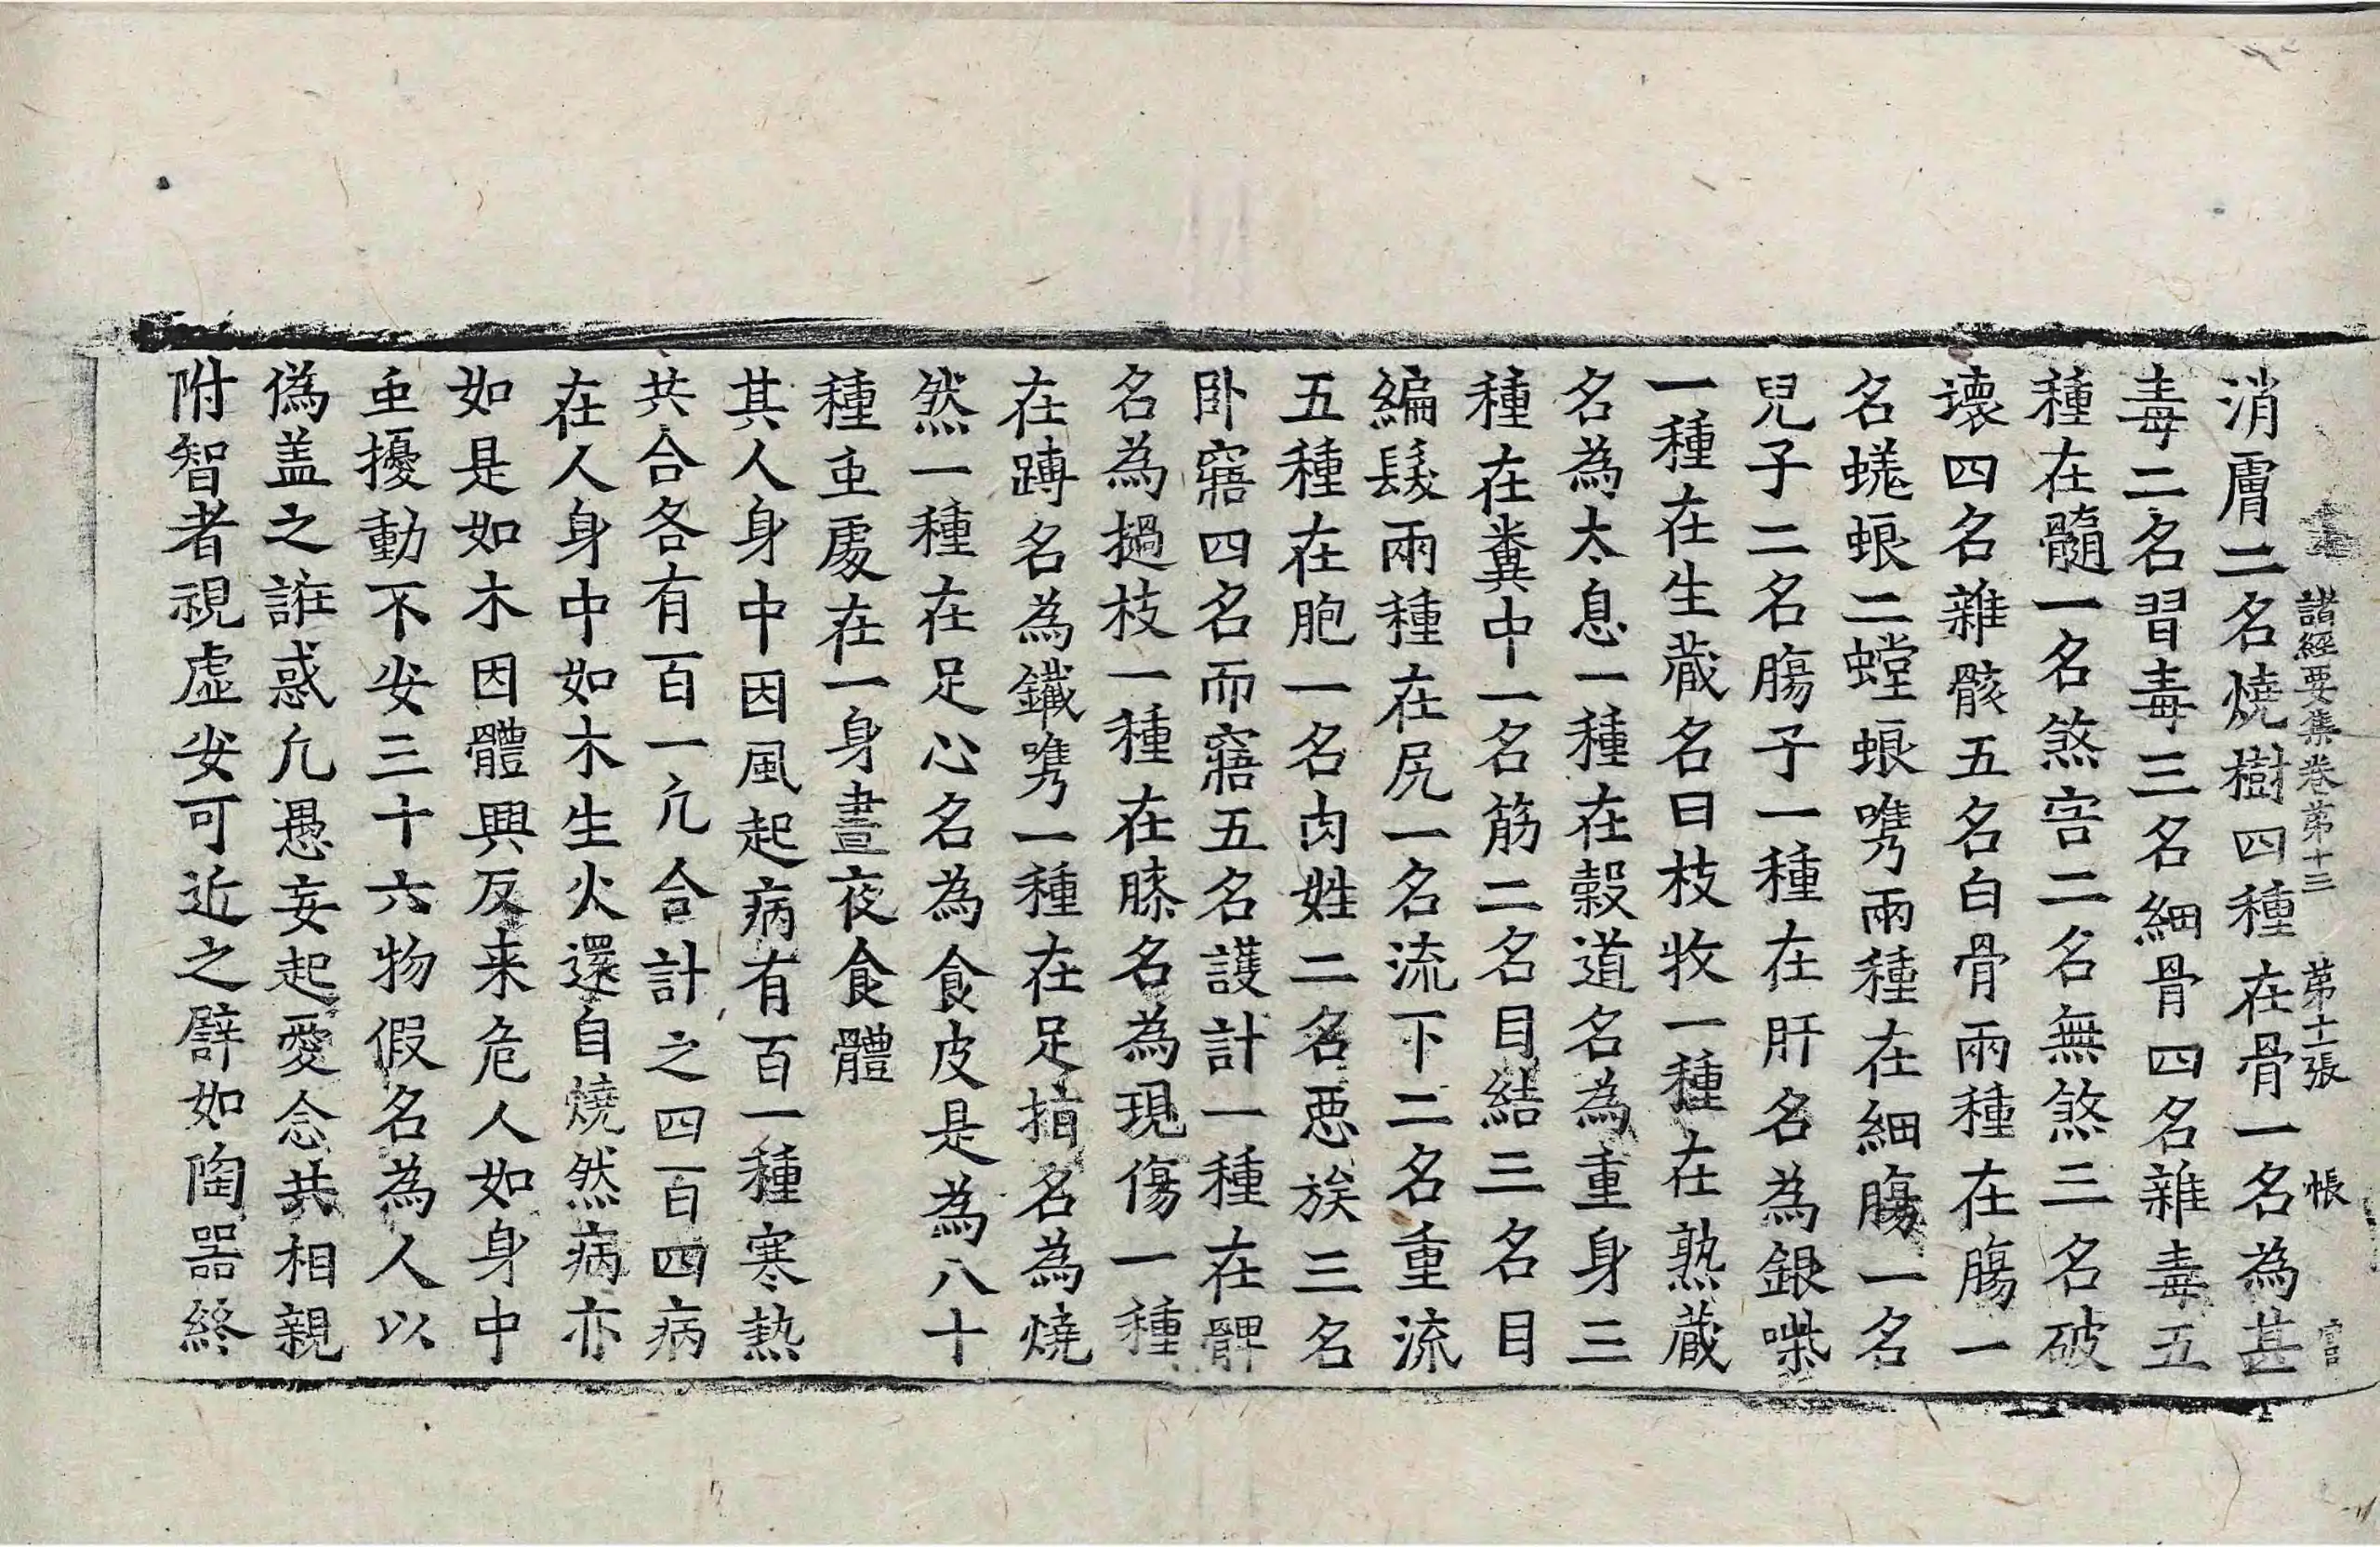 諸經要集卷第十三 第十一張 帳
消膚二名燒樹四種在骨一名為甚
毒二名習毒三名細骨四名雜毒五
種在髓一名煞害二名無煞三名破
壞四名雜骸五名白骨兩種在膓一
名蜣蜋二螳蜋嘴兩種在細膓一名
兒子二名膓子一種在肝名為銀喍
一種在生蔵名曰枝牧一種在熟蔵
名為太息一種在穀道名為重身三
種在糞中一名筋二名目結三名目
編髮兩種在尻一名流下二名重流
五種在胞一名肉姓二名惡族三名
卧寤四名而寤五名護計一種在髀
名為撾枝一種在膝名為現傷一種
在䏝名為鐵嘴一種在足指名為燒
然一種在足心名為食皮是為八十
種虫處在一身晝夜食體
其人身中因風起病有百一種寒熱
共合各有百一凢合計之四百四病
在人身中如木生火還自燒然病亦
如是如木因體興反来危人如身中
虫擾動不安三十六物假名為人以
偽盖之誑惑凢愚妄起愛念共相親
附智者視虛安可近之譬如陶器終